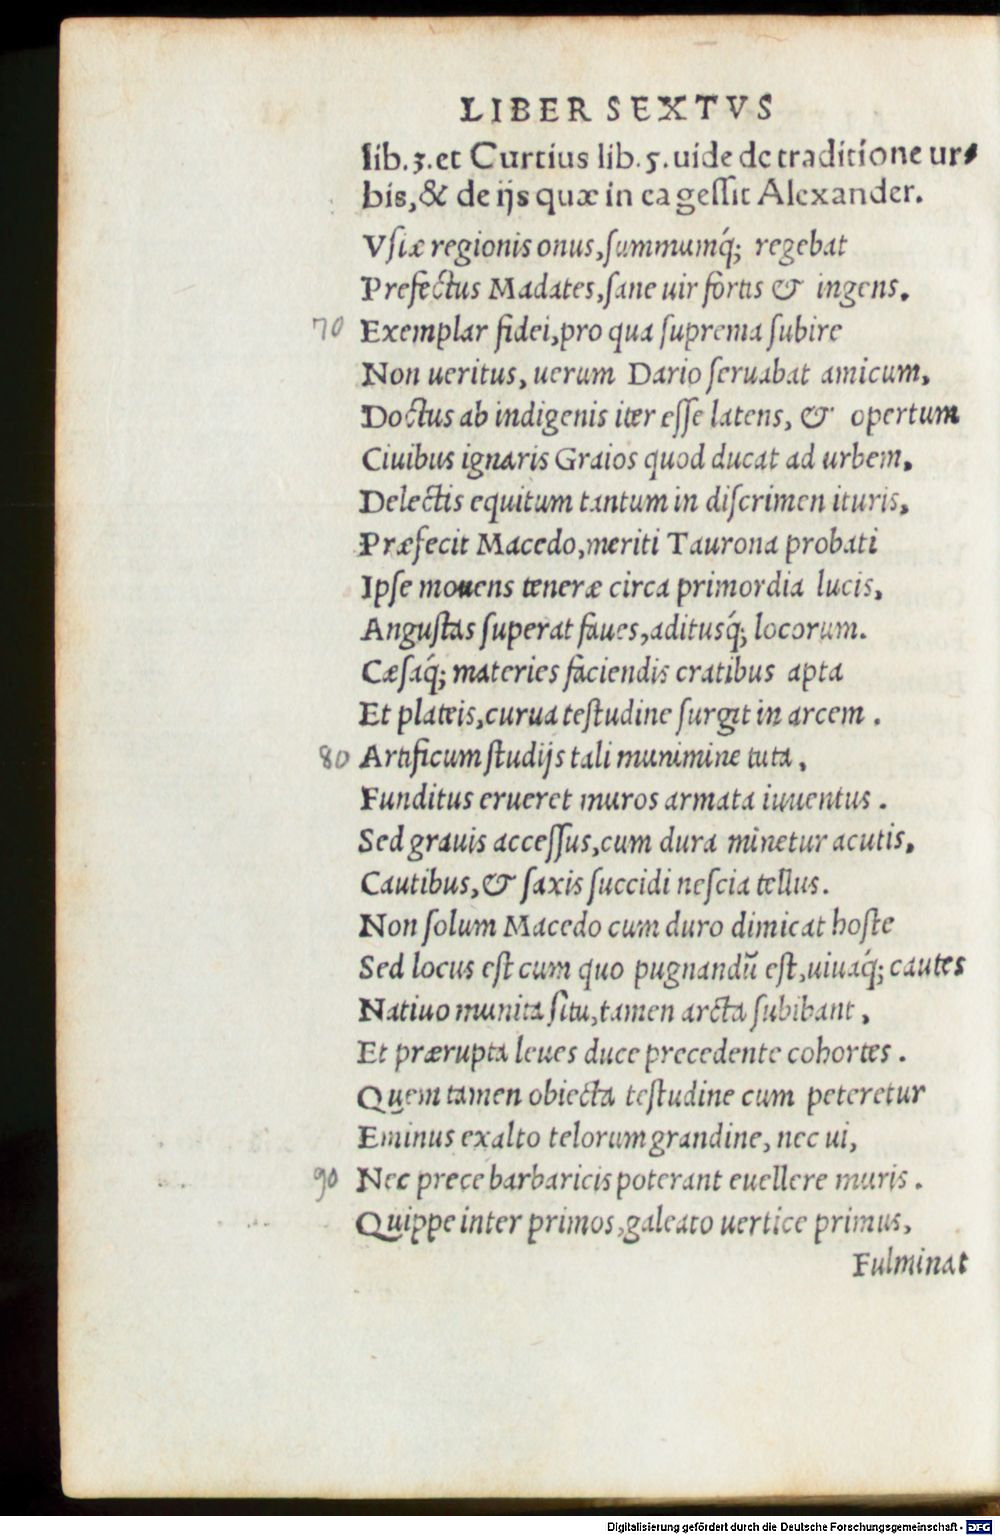 LIBER SEXTVS
lib. 3. et Curtius lib. 5. uide de traditione ur-
bis, & de ijs quæ in ea gessit Alexander.
Vsiæ regionis onus, summumq́; regebat
Prefectus Madates, sane uir fortis & ingens.
70 Exemplar fidei, pro qua suprema subire
Non ueritus, uerum Dario seruabat amicum,
Doctus ab indigenis iter esse latens, & opertum
Ciuibus ignaris Graios quod ducat ad urbem,
Delectis equitum tantum in discrimen ituris,
Præfecit Macedo, meriti Taurona probati
Ipse mouens teneræ circa primordia lucis,
Angustas superat faues, aditusq́; locorum.
Cæsaq́; materies faciendis cratibus apta
Et plateis, curua testudine surgit in arcem.
80 Artificum studijs tali munimine tuta,
Funditus erueret muros armata iuuentus.
Sed grauis accessus, cum dura minetur acutis,
Cautibus, & saxis succidi nescia tellus.
Non solum Macedo cum duro dimicat hoste
Sed locus est cum quo pugnandū est, uiuaq́; cautes
Natiuo munita situ, tamen arcta subibant,
Et prærupta leues duce precedente cohortes.
Quem tamen obiecta testudine cum peteretur
Eminus ex alto telorum grandine, nec ui,
90 Nec prece barbaricis poterant euellere muris.
Quippe inter primos, galeato uertice primus,
Fulminat
Digitalisierung gefördert durch die Deutsche Forschungsgemeinschaft - DFG